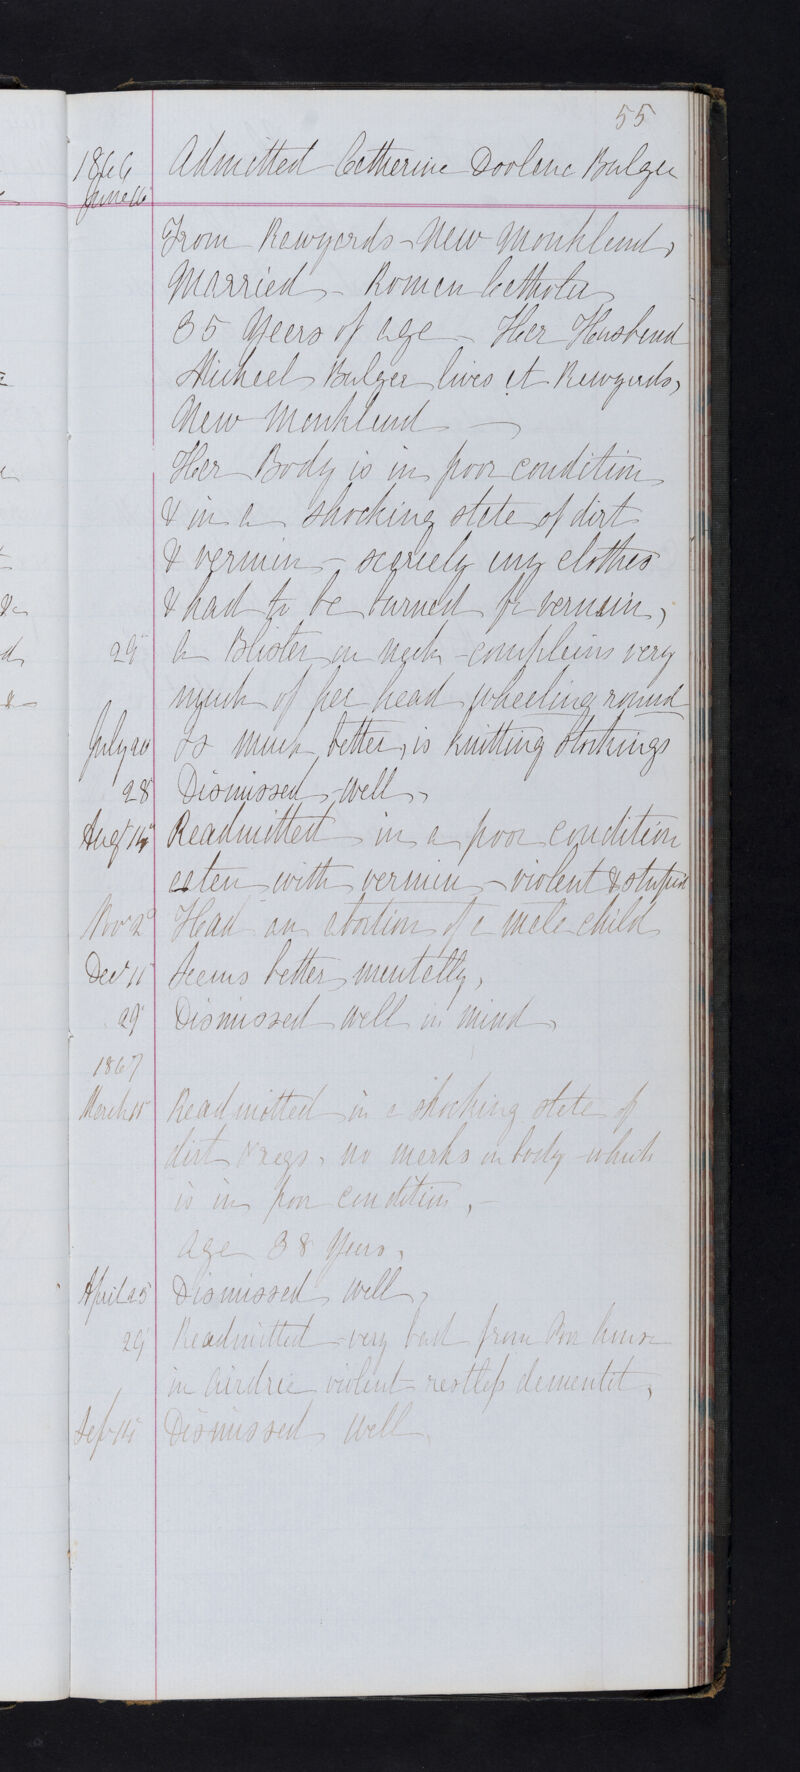 55
1866 Admitted Catherine Doolan Bulger
June 16
From Rawyards - New Monkland,
Married - Roman Catholic
35 Years of age - Her Husband
Micheel Bulger lives at Rawyards,
New Monkland -
Her Body is in poor condition
& in a shocking state of dirt
& vermin - scarcely any clothes
& had to be burned for vermin,
29 A Blister on neck - complains very
much of her head wheeling round
July 20 Is much better, is knitting stockings
28 Dismissed well,
Augt 14 Readmitted in a poor condition
eaten with vermin - violent & stupid
Nov 2 Had an abortion of a male child
Decr 11 Seems better mentally,
29 Dismissed well in mind,
1867
March 15 Readmitted in a shocking state of
dirt & rags, no marks on body which
is in poor condition, -
Age 38 Years,
April 25 Dismissed well,
29 Readmitted very bad from Poor house
in Airdrie violent restless demented,
Sep 15 Dismissed well